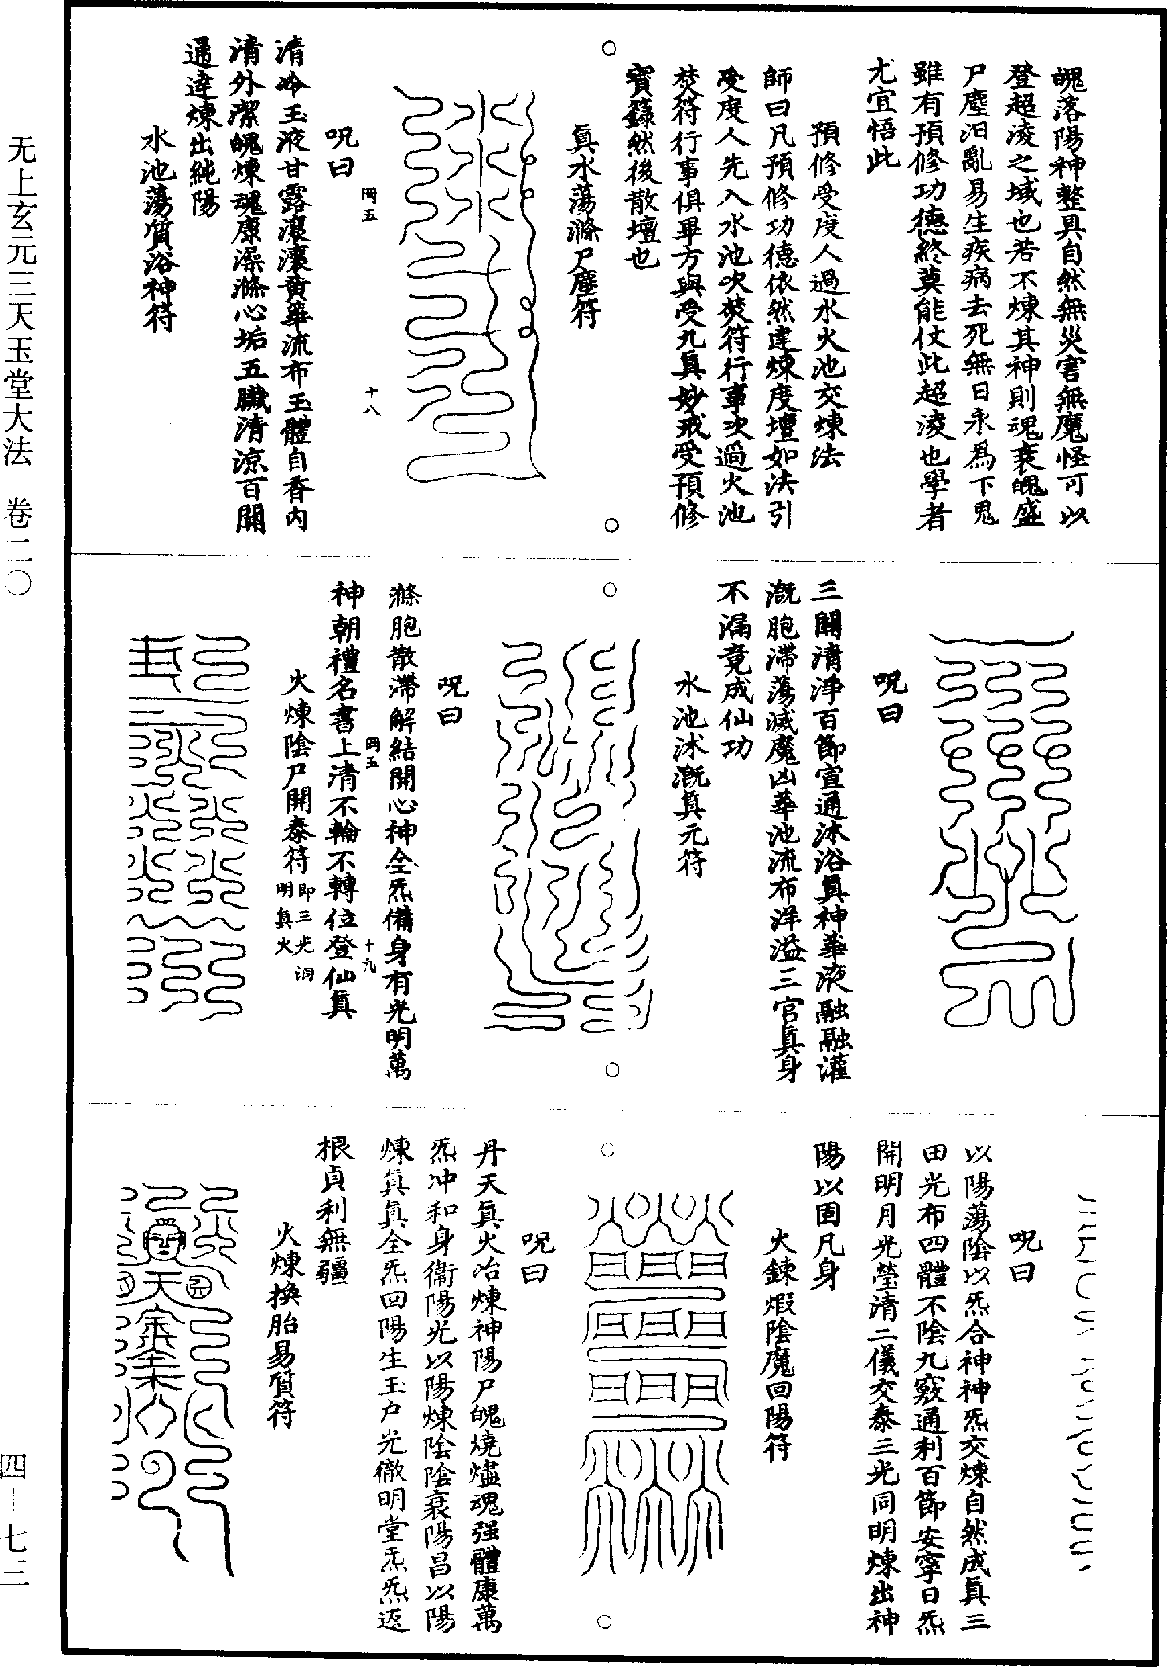 魄落陽神整具自然無災害無魔怪可以
登超凌之域也若不煉其神則魂衰魄盛
尸塵汩亂易生疾病去死無日永為下鬼
雖有預修功德終莫能仗此超淩也學者
尤宜悟此
預修受度人過水火池交煉法
師曰凡預修功德依然建煉度壇如法引
受度人先入水池次焚符行事次過火池
焚符行事俱畢方與受九真妙戒受預修
寶籙然後散壇也
真水蕩滌尸塵符
呪曰
岡五
十八
清冷玉液甘露瀼瀼黃華流布玉體自香內
清外潔魄煉魂康澡滌心垢五臟清涼百關
通達煉出純陽
水池蕩質浴神符
呪曰
三關清淨百節宣通沐浴真神華液融融灌
溉胞滯蕩滅魔凶華池流布洋溢三宮真身
不漏竟成仙功
水池沐溉真元符
呪曰
滌胞散滯解結開心神全炁備身有光明萬
岡五
十九
神朝禮名書上清不輪不轉位登仙真
火煉陰尸開泰符即三光洞
明真火
呪曰
以陽蕩陰以炁合神神炁交煉自然成真三
田光布四體不陰九竅通利百節安寧日炁
開明月光瑩清二儀交泰三光同明煉出神
陽以固凡身
火鍊煆陰魔回陽符
呪曰
丹天真火冶煉神陽尸魄燒燼魂强體康萬
炁冲和身衛陽光以陽煉陰陰衰陽昌以陽
煉真真全炁回陽生玉户光徹明堂炁炁返
根貞利無疆
火煉換胎易質符
无上玄元三天玉堂大法 卷二〇
四—七三